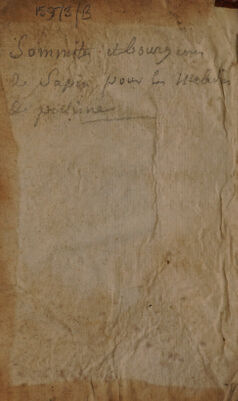 1597/8/B
Sommités et bourgeons
de Sapin pour les Maladies
de poitrine